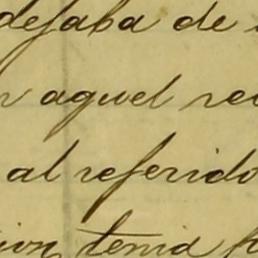 dejaba de
aquel
al referido
tenia